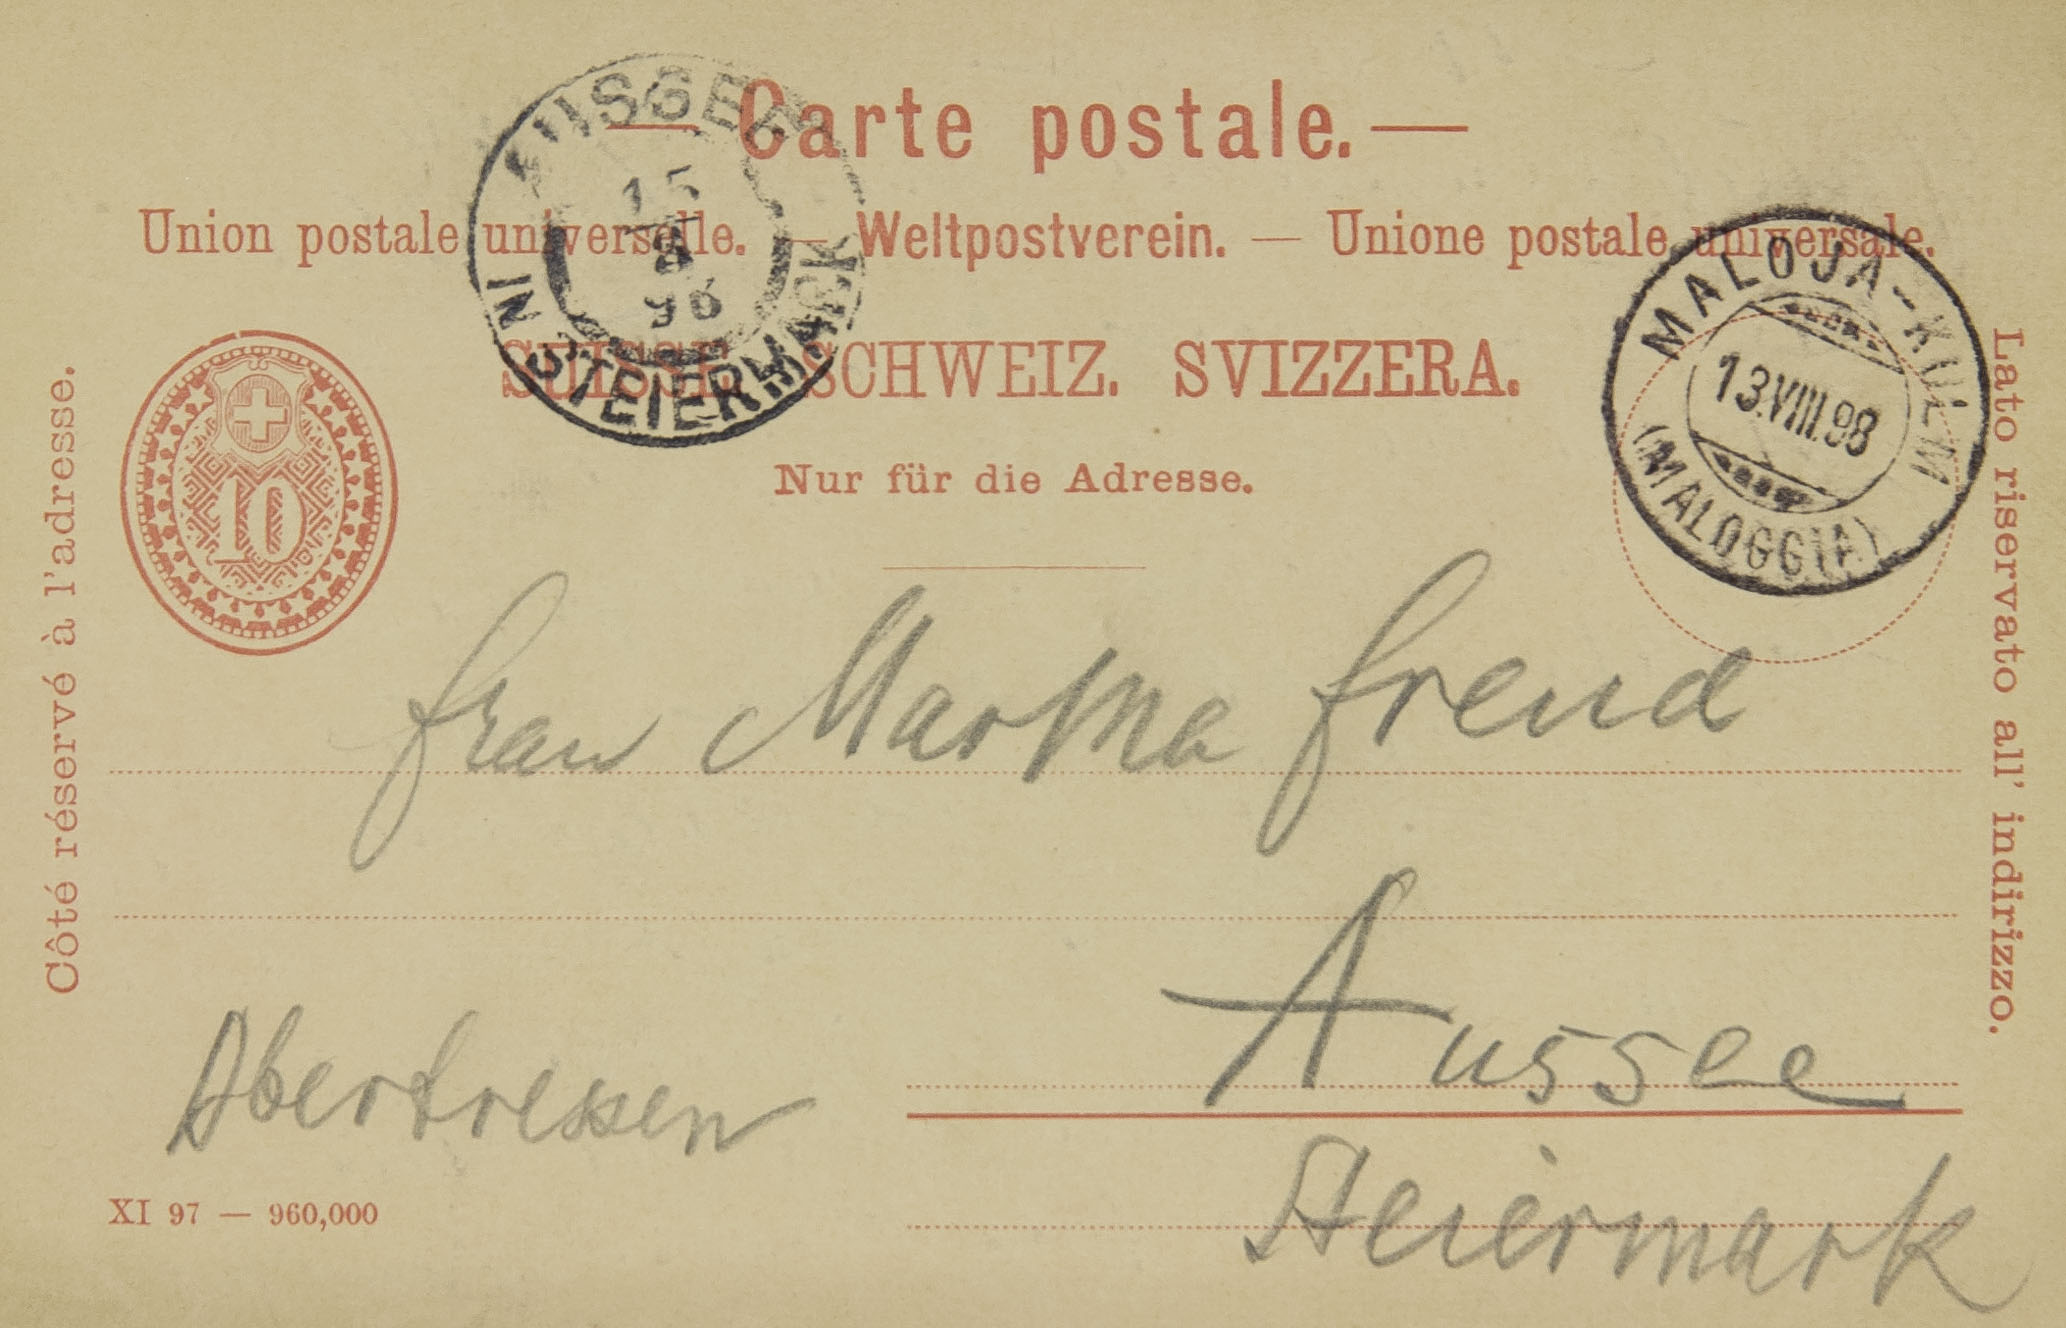 — Carte postale. —
Union postale universelle. — Weltpostverein. — Unione postale universale.
SUISSE. SCHWEIZ. SVIZZERA.
Nur für die Adresse.
Côté réservé à l'adresse.
Lato riservato all' indirizzo.
10
AUSSEE
15
8
98
IN STEIERMARK
MALOJA-KULM
13.VIII.98
(MALOGGIA)
Frau Martha Freud
Aussee
Obertressen
Steiermark
XI 97 — 960,000